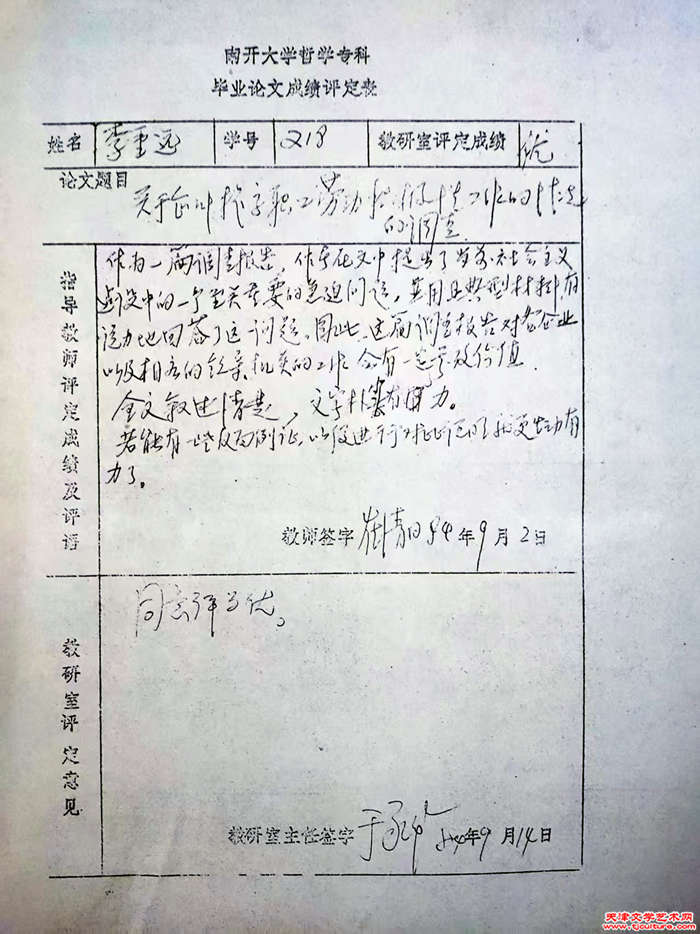 南开大学哲学专科
毕业论文成绩评定表
姓名 李重远 学号 218 教研室评定成绩 优
论文题目 关于企业提高职工劳动积极性工作的情况
的调查
指导教师评定成绩及评语
作为一篇调查报告,作者在文中提出了当前社会主义
建设中的一个至关重要的急迫问题,并用典型材料有
说力地回答了这一问题。因此,这篇调查报告对各企业
以及相应的领导机关的工作会有一定参考价值。
全文叙述清楚,文字朴实有力。
若能有一些反面例证,以便进行对比论证就更生动有
力了。
教师签字 崔清田 84年9月2日
教研室评定意见
同意评为优。
教研室主任签字 84年9月14日
天津文学艺术网
www.tjculture.com